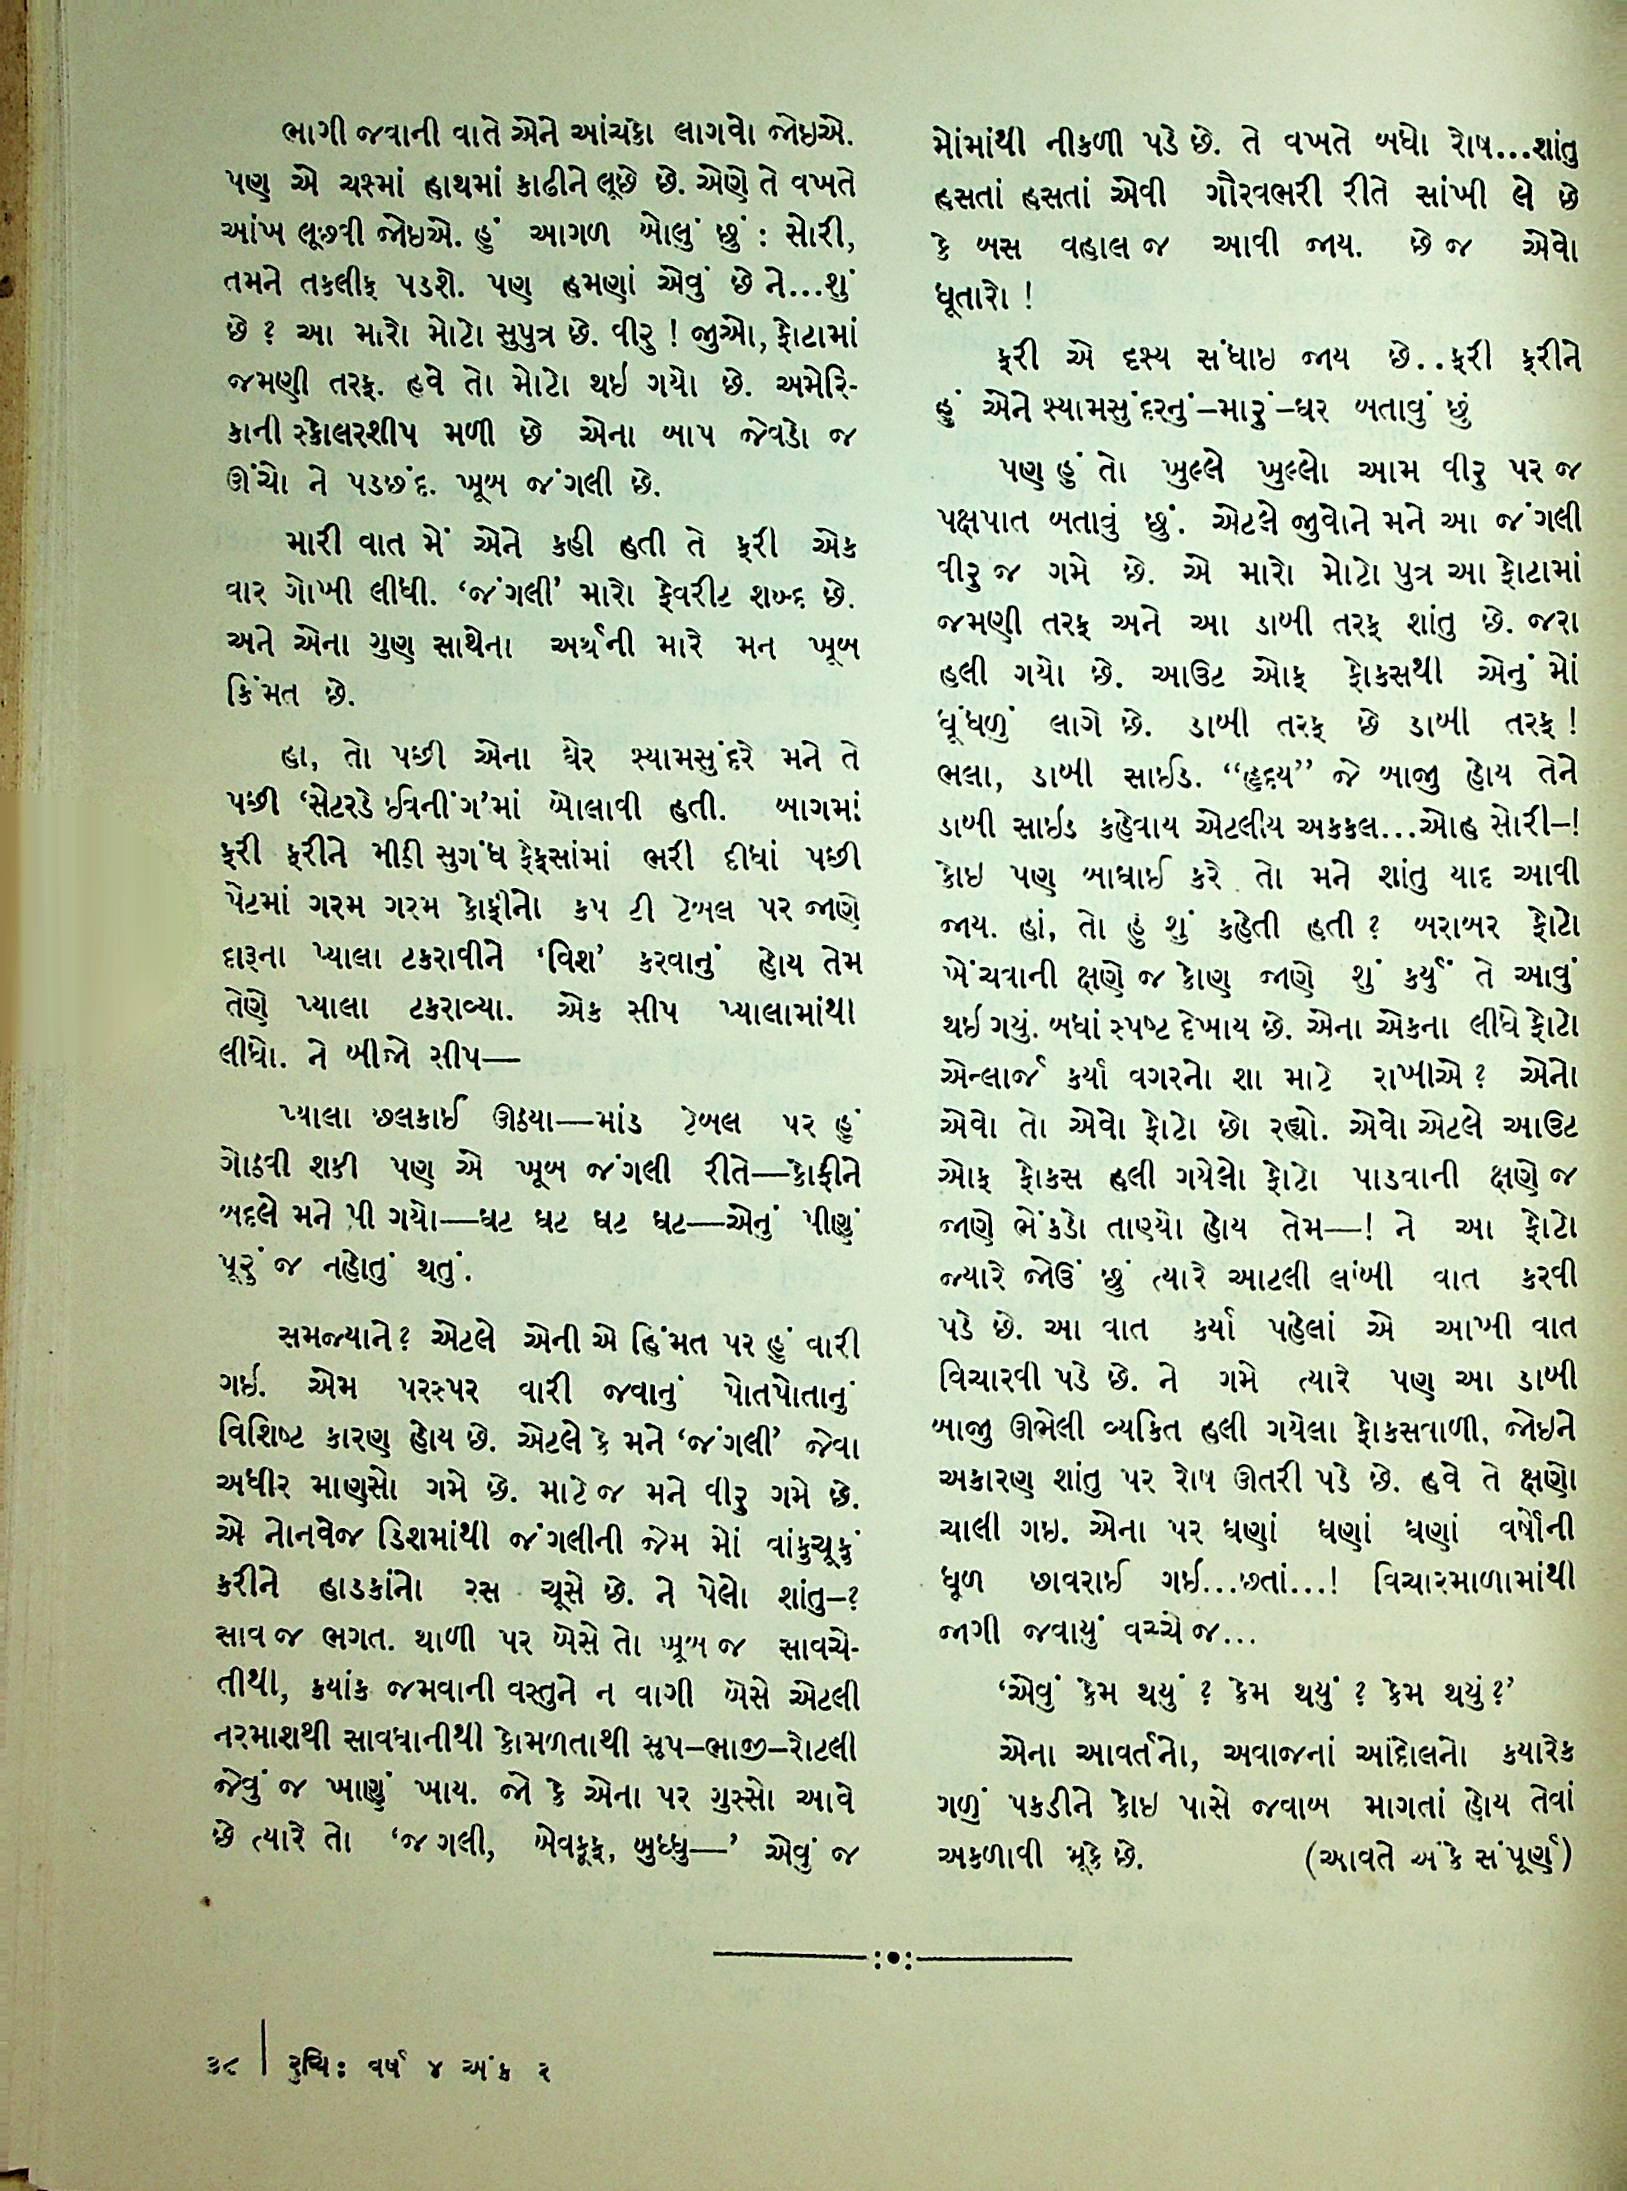 ભાગી જવાની વાતે એને આંચકો લાગવો જોઇએ.
પણ એ ચશ્માં હાથમાં કાઢીને લૂછે છે. એણે તે વખતે
આંખ લૂછવી જોઇએ. હું આગળ બોલું છું : સોરી,
તમને તકલીફ પડશે. પણ હમણાં એવું છે ને...શું
છે ? આ મારો મોટો સુપુત્ર છે. વીરુ ! જુઓ, ફોટામાં
જમણી તરફ. હવે તો મોટો થઇ ગયો છે. અમેરિ-
કાની સ્કોલરશીપ મળી છે એના બાપ જેવડો જ
ઊંચો ને પડછંદ. ખૂબ જંગલી છે.
મારી વાત મેં એને કહી હતી તે ફરી એક
વાર ગોખી લીધી. ‘જંગલી’ મારો ફેવરીટ શબ્દ છે.
અને એના ગુણ સાથેના અર્થની મારે મન ખૂબ
કિંમત છે.
હા, તો પછી એના ઘેર શ્યામસુંદરે મને તે
પછી ‘સેટરડે ઈવનીંગ’માં બોલાવી હતી. બાગમાં
ફરી ફરીને મીઠી સુગંધ ફેફસાંમાં ભરી દીધાં પછી
પેટમાં ગરમ ગરમ કોફીનો કપ ટી ટેબલ પર જાણે
દારૂના પ્યાલા ટકરાવીને ‘વિશ’ કરવાનું હોય તેમ
તેણે પ્યાલા ટકરાવ્યા. એક સીપ પ્યાલામાંથી
લીધો. ને બીજો સીપ—
પ્યાલા છલકાઈ ઊઠયા—માંડ ટેબલ પર હું
ગોઠવી શકી પણ એ ખૂબ જંગલી રીતે—કોફીને
બદલે મને પી ગયો—ઘટ ઘટ ઘટ ઘટ—એનું પીણું
પૂરું જ નહોતું થતું.
સમજ્યાને ? એટલે એની એ હિંમત પર હું વારી
ગઇ. એમ પરસ્પર વારી જવાનું પોતપોતાનું
વિશિષ્ટ કારણ હોય છે. એટલે કે મને ‘જંગલી’ જેવા
અધીર માણસો ગમે છે. માટે જ મને વીરુ ગમે છે.
એ નોનવેજ ડિશમાંથી જંગલીની જેમ મોં વાંકુચૂકું
કરીને હાડકાંનો રસ ચૂસે છે. ને પેલો શાંતુ–?
સાવ જ ભગત. થાળી પર બેસે તો ખૂબ જ સાવચે-
તીથી, કયાંક જમવાની વસ્તુને ન વાગી બેસે એટલી
નરમાશથી સાવધાનીથી કોમળતાથી સૂપ–ભાજી–રોટલી
જેવું જ ખાણું ખાય. જો કે એના પર ગુસ્સો આવે
છે ત્યારે તો ‘જંગલી, બેવકૂફ, બુધ્ધુ—’ એવું જ
મોંમાંથી નીકળી પડે છે. તે વખતે બધો રોષ...શાંતુ
હસતાં હસતાં એવી ગૌરવભરી રીતે સાંખી લે છે
કે બસ વહાલ જ આવી જાય. છે જ એવો
ધૂતારો !
ફરી એ દૃશ્ય સંધાઇ જાય છે..ફરી ફરીને
હું એને શ્યામસુંદરનું–મારું–ઘર બતાવું છું
પણ હું તો ખુલ્લે ખુલ્લો આમ વીરુ પર જ
પક્ષપાત બતાવું છું. એટલે જુવોને મને આ જંગલી
વીરુ જ ગમે છે. એ મારો મોટો પુત્ર આ ફોટામાં
જમણી તરફ અને આ ડાબી તરફ શાંતુ છે. જરા
હલી ગયો છે. આઉટ ઓફ ફોકસથી એનું મોં
ધૂંધળું લાગે છે. ડાબી તરફ છે ડાબી તરફ !
ભલા, ડાબી સાઈડ. “હૃદય” જે બાજુ હોય તેને
ડાબી સાઇડ કહેવાય એટલીય અકકલ...ઓહ સોરી–!
કોઇ પણ બાધાઈ કરે તો મને શાંતુ યાદ આવી
જાય. હાં, તો હું શું કહેતી હતી ? બરાબર ફોટો
ખેંચવાની ક્ષણે જ કોણ જાણે શું કર્યું તે આવું
થઇ ગયું. બધાં સ્પષ્ટ દેખાય છે. એના એકના લીધે ફોટો
એન્લાર્જ કર્યા વગરનો શા માટે રાખીએ ? એનો
એવો તો એવો ફોટો છો રહ્યો. એવો એટલે આઉટ
ઓફ ફોકસ હલી ગયેલો ફોટો પાડવાની ક્ષણે જ
જાણે ભેંકડો તાણ્યો હોય તેમ—! ને આ ફોટો
જ્યારે જોઉં છું ત્યારે આટલી લાંબી વાત કરવી
પડે છે. આ વાત કર્યા પહેલાં એ આખી વાત
વિચારવી પડે છે. ને ગમે ત્યારે પણ આ ડાબી
બાજુ ઊભેલી વ્યકિત હલી ગયેલા ફોકસવાળી, જોઇને
અકારણ શાંતુ પર રોષ ઊતરી પડે છે. હવે તે ક્ષણો
ચાલી ગઇ. એના પર ઘણાં ઘણાં ઘણાં વર્ષોની
ધૂળ છાવરાઈ ગઇ...છતાં...! વિચારમાળામાંથી
જાગી જવાયું વચ્ચે જ...
‘એવું કેમ થયું ? કેમ થયું ? કેમ થયું ?’
એના આવર્તનો, અવાજનાં આંદોલનો કયારેક
ગળું પકડીને કોઇ પાસે જવાબ માગતાં હોય તેવાં
અકળાવી મૂકે છે. (આવતે અંકે સંપૂર્ણ)
૩૮ | રુચિ : વર્ષ ૪ અંક ૨